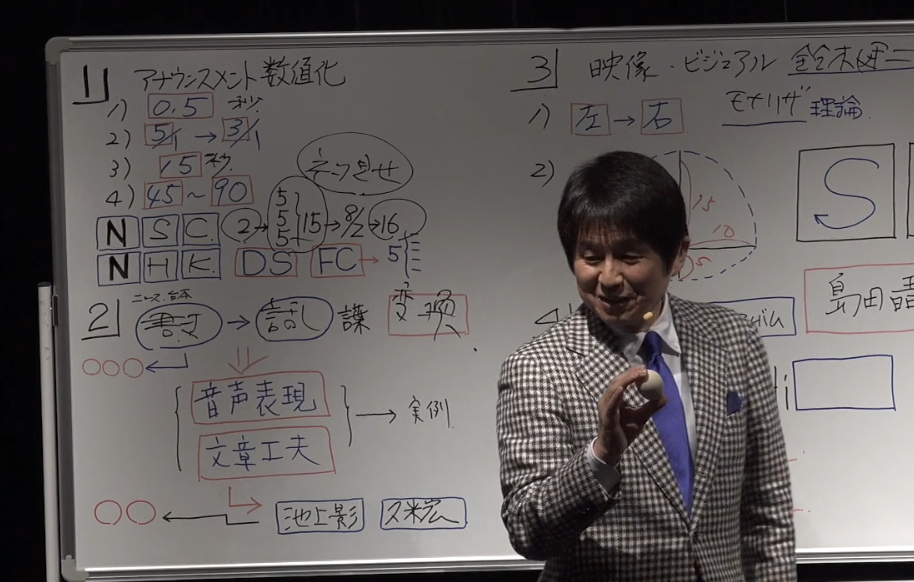 1 アナウンスメント数値化
1) 0.5 秒
2) 5/1 → 3/1
3) 15秒
4) 45〜90
チラ見せ
N S C. 2→ 5 5 5 15→8/2→16
N H K. DS FC→ 5
2 ニュース台本
書き → 話し 変換
○○○←
音声表現
文章工夫
→ 実例
○○← 池上彰 久米宏
3 映像・ビジュアル 鈴木健二
1) 左→右 モナリザ 理論
2)
15
10
S
島田